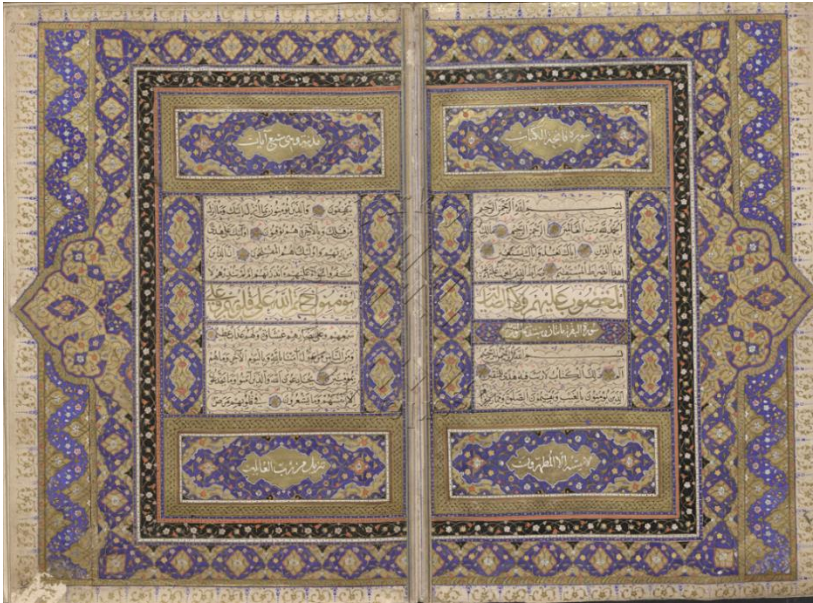 سورة فاتحة الكتاب
بسم الله الرحمن الرحيم
الحمد لله رب العالمين الرحمن الرحيم ملك
يوم الدين اياك نعبد واياك نستعين
اهدنا الصراط المستقيم صراط الذين انعمت عليهم غير
المغضوب عليهم ولا الضالين
سورة البقرة مائتان وست وثمانون
بسم الله الرحمن الرحيم
الم ذلك الكتاب لا ريب فيه هدى للمتقين
الذين يؤمنون بالغيب ويقيمون الصلوة ومما رزقناهم
لا يمسه الا المطهرون
مدنية وهي سبع آيات
ينفقون والذين يؤمنون بما انزل اليك وما انزل
من قبلك وبالاخرة هم يوقنون اولئك على هدى
من ربهم واولئك هم المفلحون ان الذين
كفروا سواء عليهم ءانذرتهم ام لم تنذرهم لا
يؤمنون ختم الله على قلوبهم وعلى
سمعهم وعلى ابصارهم غشاوة ولهم عذاب عظيم
ومن الناس من يقول آمنا بالله وباليوم الآخر وما هم
بمؤمنين يخادعون الله والذين آمنوا وما يخدعون
الا انفسهم وما يشعرون في قلوبهم مرض
تنزيل من رب العالمين